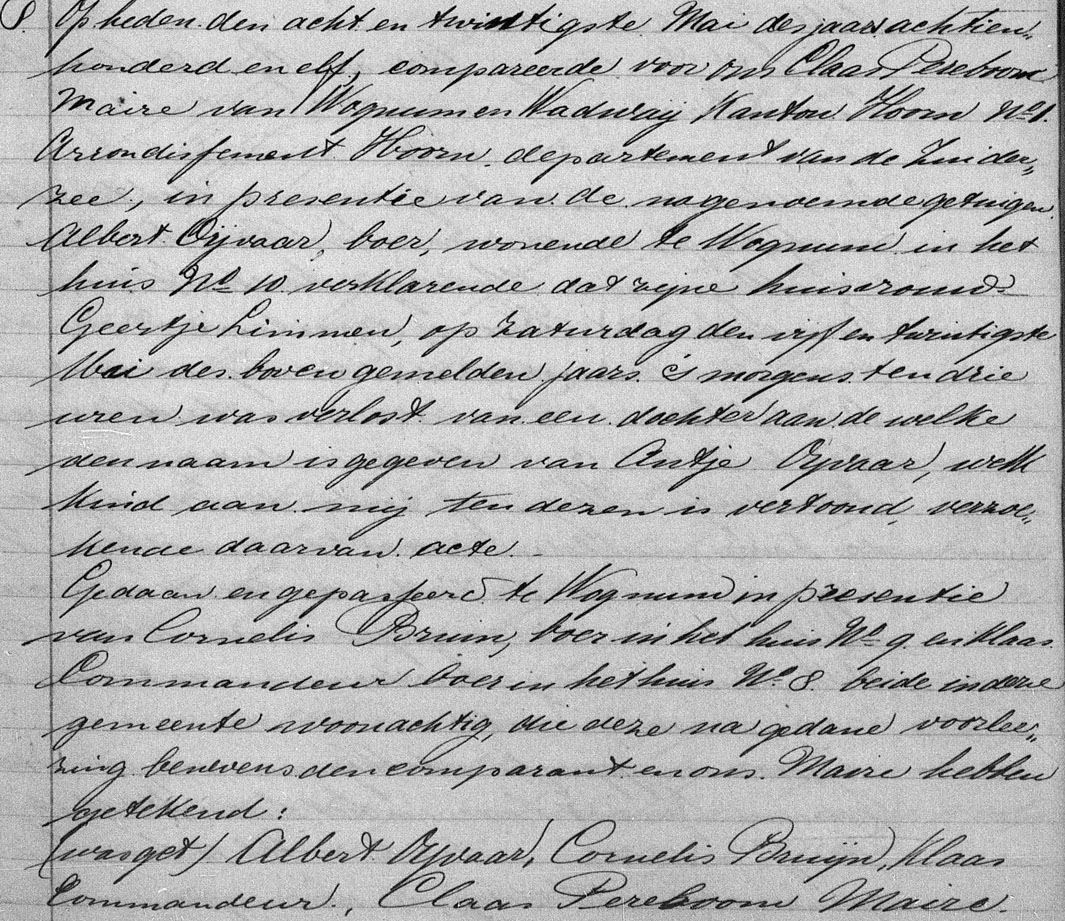 8. Op heden den acht en twintigste Mai des jaars achtien„
honderd en elf, compareerde voor ons Claas Pereboom
Maire van Wognum en Wadway Kanton Hoorn No 1.
Arrondissement Hoorn, departement van de Zuider„
zee, in presentie van de nagenoemde getuigen
Albert Oijvaar, boer, wonende te Wognum in het
huis No 10 verklarende dat zijne huisvrouw
Geertje Limmen, op Zaturdag den vijf en twintigste
Mai des boven gemelden jaars 's morgens ten drie
uren was verlost van een dochter aan de welke
den naam is gegeven van Antje Oijvaar, welk
kind aan mij ten dezen is vertoond, verzoe„
kende daarvan acte.
Gedaan en gepasseerd te Wognum in presentie
van Cornelis Bruin, boer in het huis No 9 en Klaas
Commandeur boer in het huis No 8 beide in deze
gemeente woonachtig, die deze na gedane voorlee„
zing benevens den comparant en ons Maire hebben
getekend:
(was get) Albert Oijvaar, Cornelis Bruijn, Klaas
Commandeur, Claas Pereboom Maire